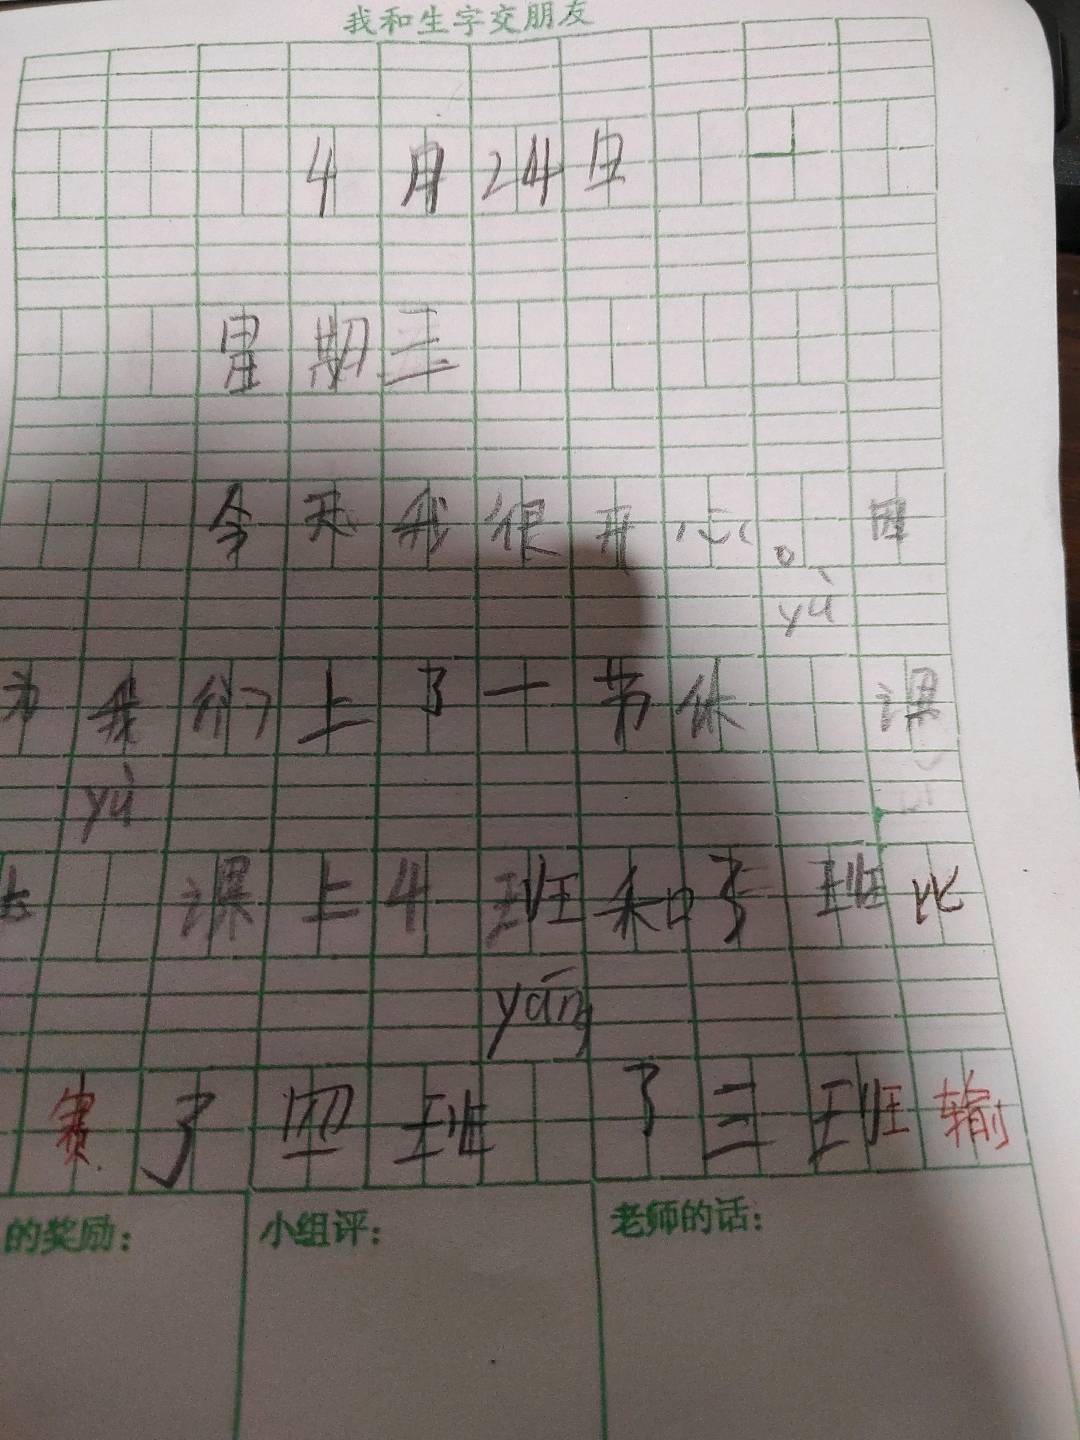 我和生字交朋友
4月24日
星期三
今天我很开心。因
yù
为我们上了一节体 课
yù
体 课上4班和3班比
yáng
赛了四班 了三班输
的奖励: 小组评: 老师的话: